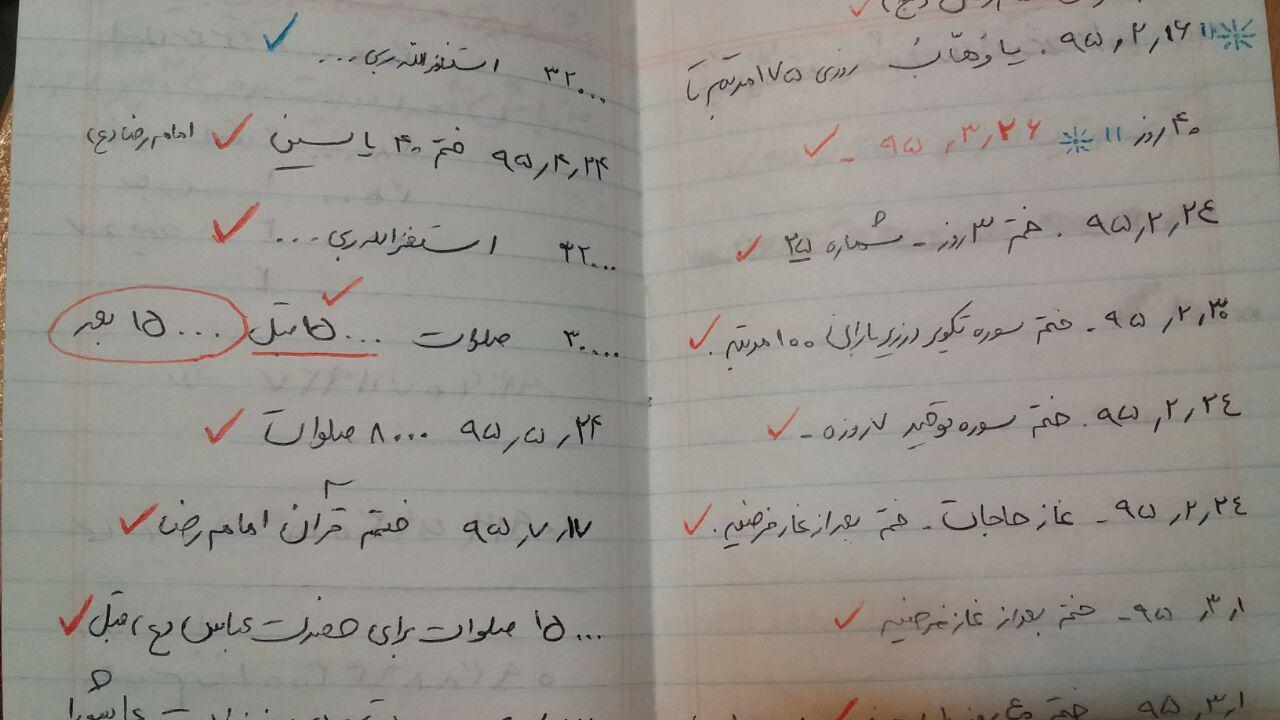 ۹۵٫۲٫۱۶ . یا وَهّابُ روزی ۱۷۵ مرتبه تا
۴۰ روز ۱۱ ۹۵٫۳٫۲۶ -
۹۵٫۲٫۲٤ . ختم ۳ روز - شماره ۲۵
۹۵٫۲٫۳۰ - ختم سوره تکویر در زیر باران ۱۰۰ مرتبه .
۹۵٫۲٫۲٤ . ختم سوره توحید ۷ روزه -
۹۵٫۲٫۲٤ - نماز حاجات - ختم بعد از نماز فرضیه .
۹۵٫۳٫۱ - ختم بعد از نماز فرضیه
۹۵٫۳٫۱
۳۲۰۰۰ استغفرالله ربی ...
۹۵٫۴٫۲۴ ختم ۴۰ یاسین امام رضا (ع)
۳۲۰۰۰ استغفرالله ربی ...
۳۰۰۰۰ صلوات ۱۵۰۰۰ قبل ۱۵۰۰۰ بعد
۹۵٫۵٫۲۴ ۸۰۰۰ صلوات
۹۵٫۷٫۱۷ ختم قرآن امام رضا
۱۵۰۰۰ صلوات برای حضرت عباس (ع) قبل
عاشورا